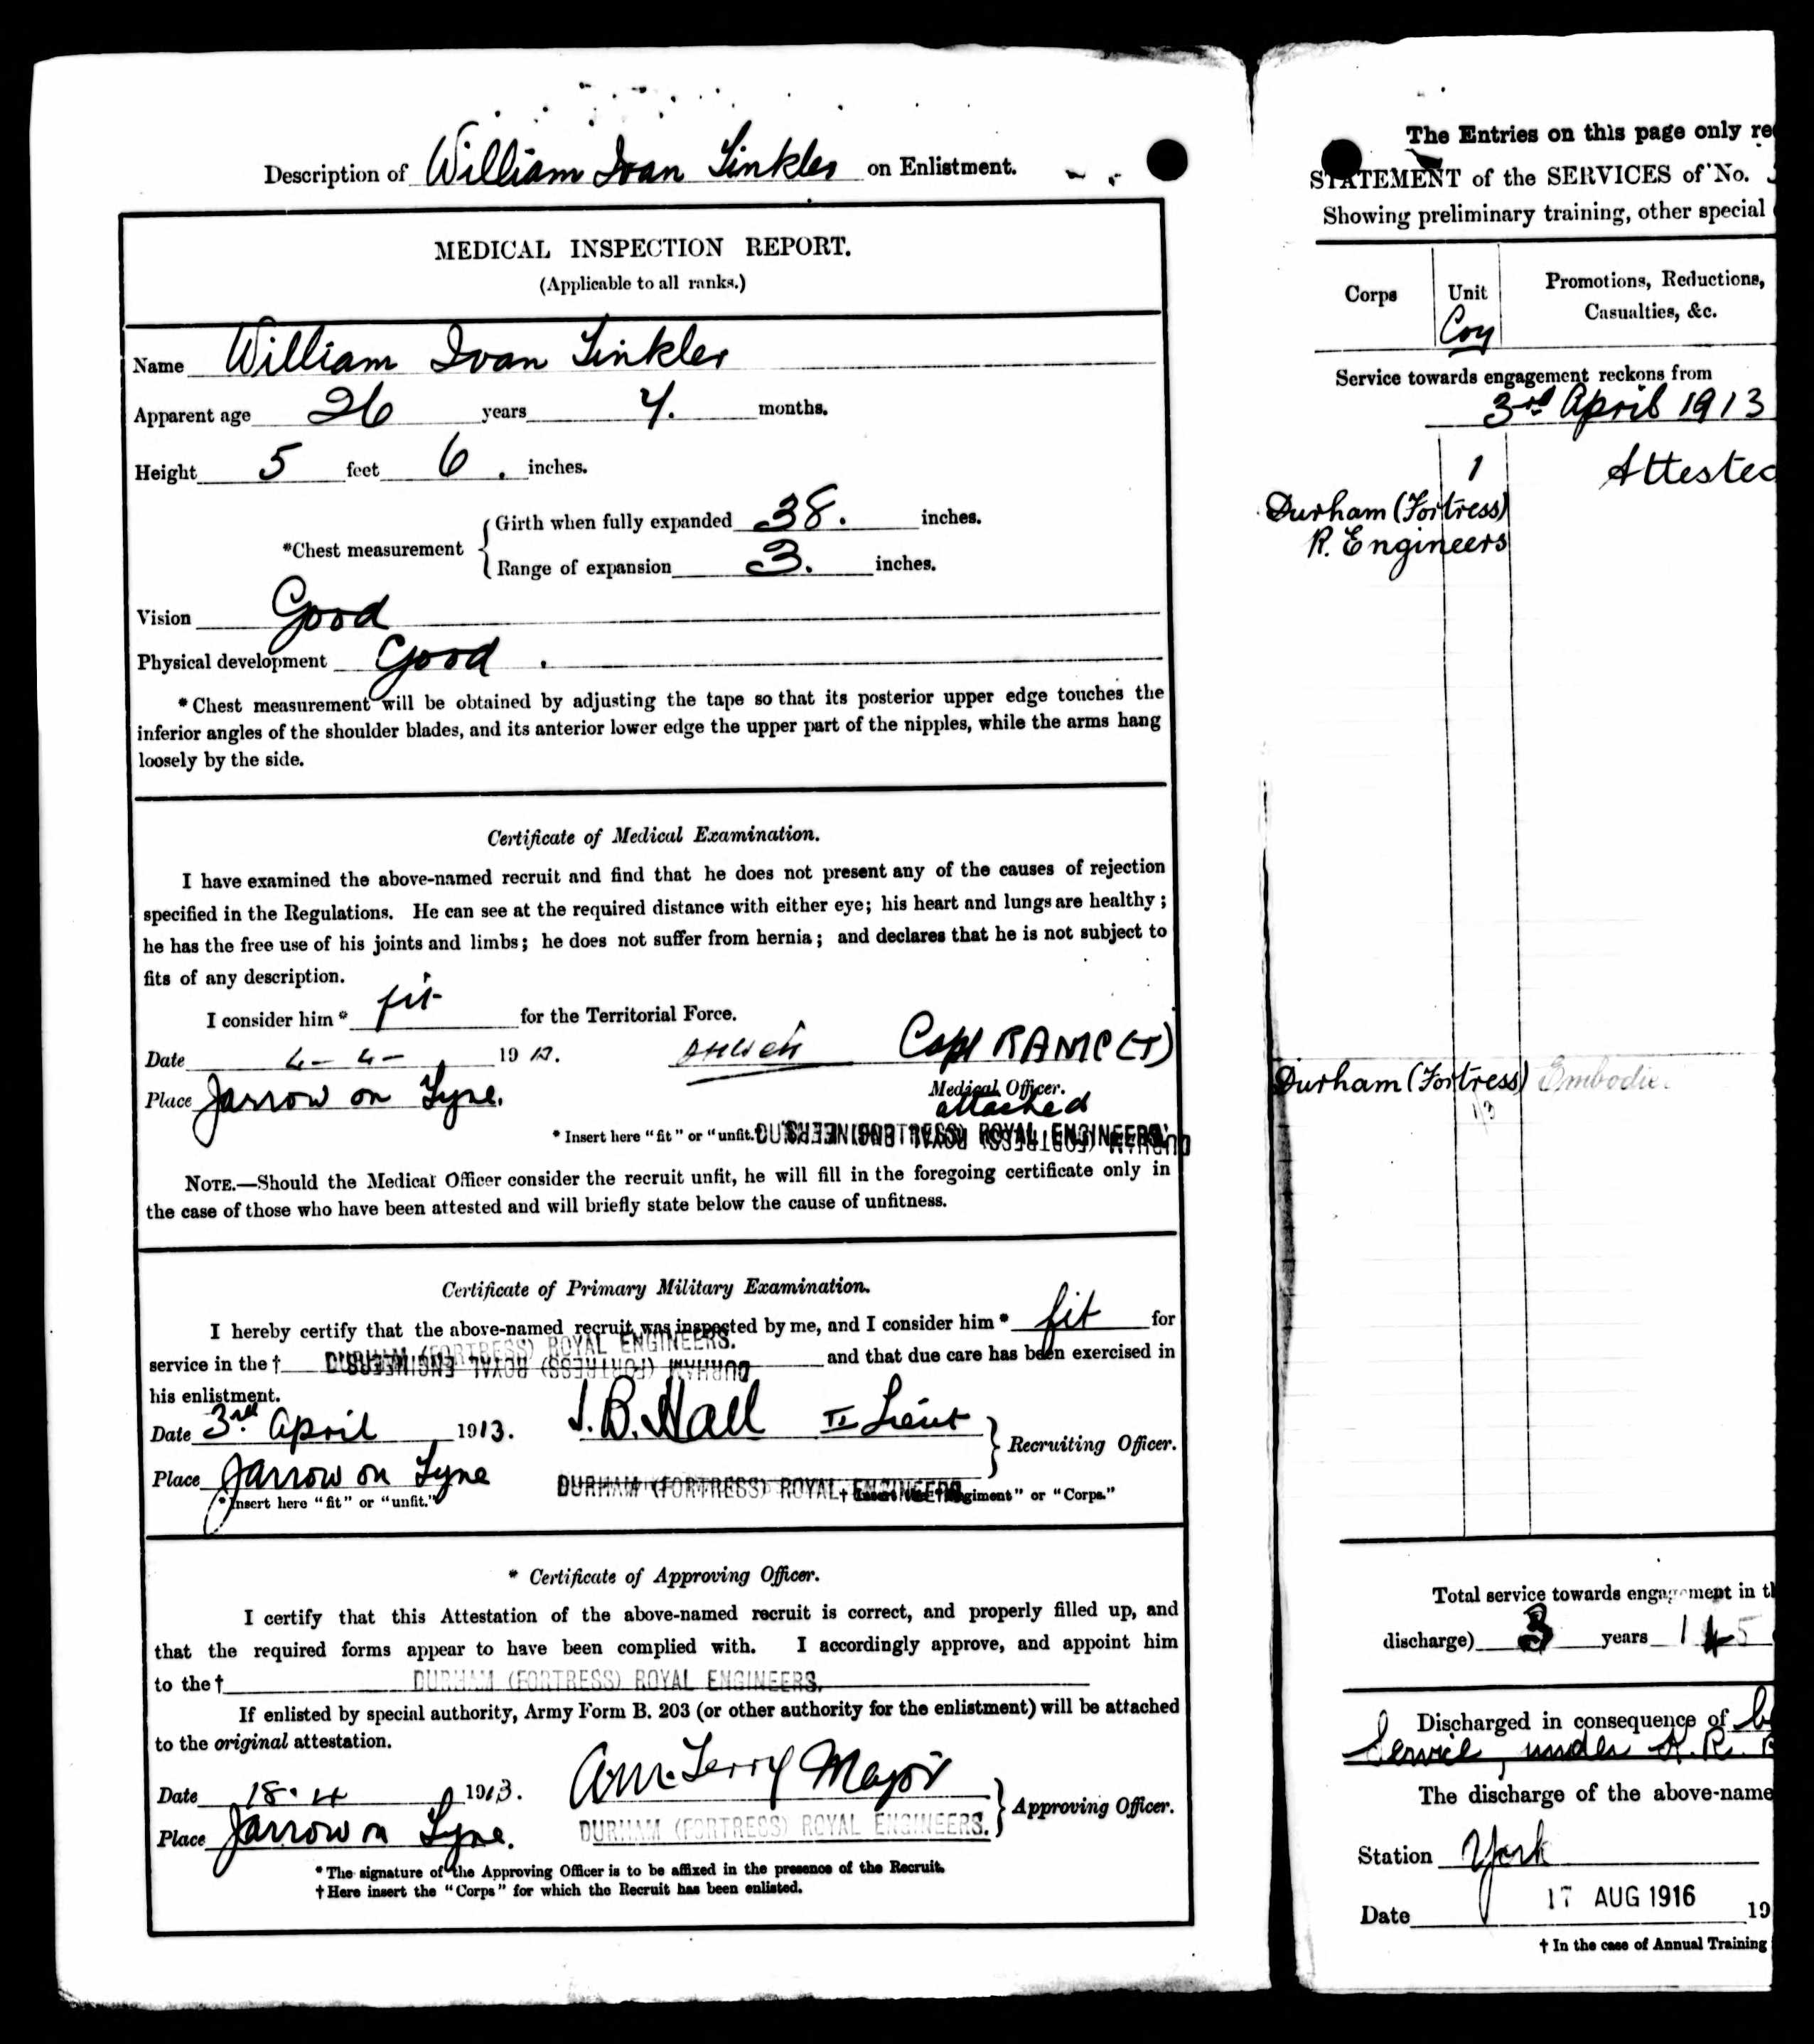 Description of William Ivan Tinkler on Enlistment.
MEDICAL INSPECTION REPORT.
(Applicable to all ranks.)
Name William Ivan Tinkler
Apparent age 26 years 4. months.
Height 5 feet 6. inches.
*Chest measurement
Girth when fully expanded 38. inches.
Range of expansion 3. inches.
Vision Good
Physical development Good.
* Chest measurement will be obtained by adjusting the tape so that its posterior upper edge touches the
inferior angles of the shoulder blades, and its anterior lower edge the upper part of the nipples, while the arms hang
loosely by the side.
Certificate of Medical Examination.
I have examined the above-named recruit and find that he does not present any of the causes of rejection
specified in the Regulations. He can see at the required distance with either eye; his heart and lungs are healthy;
he has the free use of his joints and limbs; he does not suffer from hernia; and declares that he is not subject to
fits of any description.
I consider him* fit for the Territorial Force.
Date 4-4- 19 Capt RAMC (T)
Medical Officer.
Place Jarrow on Tyne. attached
* Insert here "fit" or "unfit." ROYAL ENGINEERS.
NOTE.—Should the Medical Officer consider the recruit unfit, he will fill in the foregoing certificate only in
the case of those who have been attested and will briefly state below the cause of unfitness.
Certificate of Primary Military Examination.
I hereby certify that the above-named recruit was inspected by me, and I consider him* fit for
DURHAM (FORTRESS) ROYAL ENGINEERS.
service in the † DURHAM (FORTRESS) ROYAL ENGINEERS and that due care has been exercised in
his enlistment.
Date 3rd April 1913. J.B. Hall II Lieut
Recruiting Officer.
Place Jarrow on Tyne DURHAM (FORTRESS) ROYAL ENGINEERS
* Insert here "fit" or "unfit." † Insert the "Regiment" or "Corps."
* Certificate of Approving Officer.
I certify that this Attestation of the above-named recruit is correct, and properly filled up, and
that the required forms appear to have been complied with. I accordingly approve, and appoint him
to the † DURHAM (FORTRESS) ROYAL ENGINEERS.
If enlisted by special authority, Army Form B. 203 (or other authority for the enlistment) will be attached
to the original attestation.
Date 18.4 1913. Terry Major
Approving Officer.
Place Jarrow on Tyne. DURHAM (FORTRESS) ROYAL ENGINEERS.
* The signature of the Approving Officer is to be affixed in the presence of the Recruit.
† Here insert the "Corps" for which the Recruit has been enlisted.
The Entries on this page only re
STATEMENT of the SERVICES of No.
Showing preliminary training, other special
Corps
Unit
Coy
Promotions, Reductions,
Casualties, &c.
Service towards engagement reckons from
3rd April 1913
1 Attested
Durham (Fortress)
R. Engineers
Durham (Fortress) Embodie
1/3
Total service towards engagement in th
discharge) 3 years
Discharged in consequence of
Service under K.R.
The discharge of the above-name
Station York
Date 17 AUG 1916 19
† In the case of Annual Training